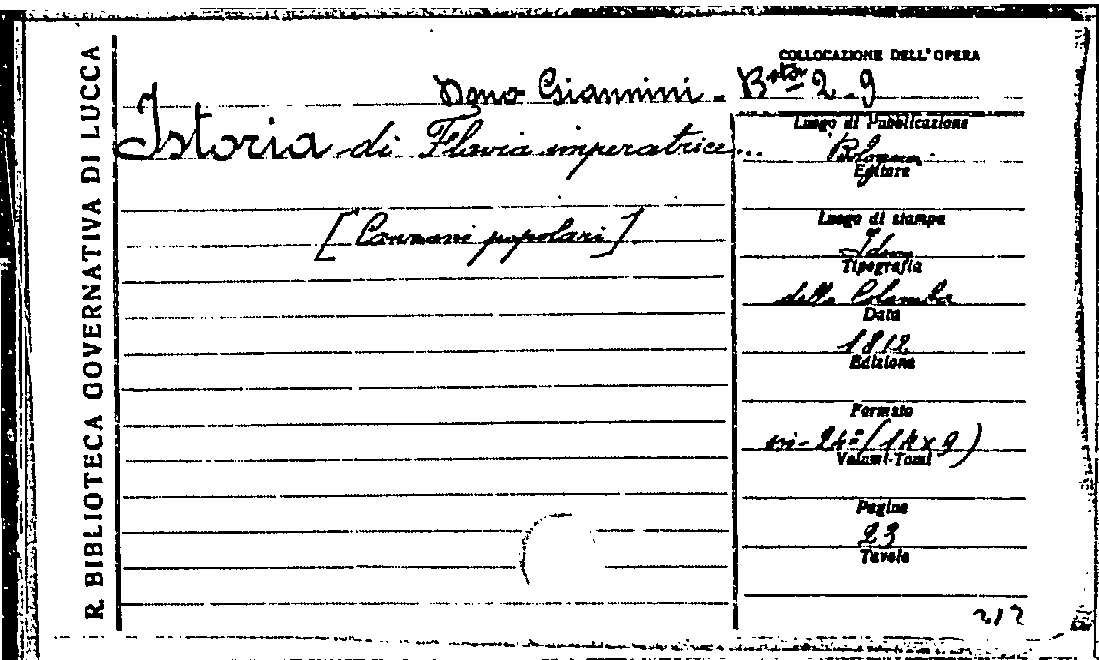 R. BIBLIOTECA GOVERNATIVA DI LUCCA
COLLOCAZIONE DELL'OPERA
Dono Giannini - Bsta 2.9
Istoria di Flavia imperatrice...
[Cantari popolari]
Luogo di Pubblicazione
Bologna
Editore
Luogo di stampa
Idem
Tipografia
della Colomba
Data
1812
Edizione
Formato
in-24º (14x9)
Volumi-Tomi
Pagine
23
Tavole
212